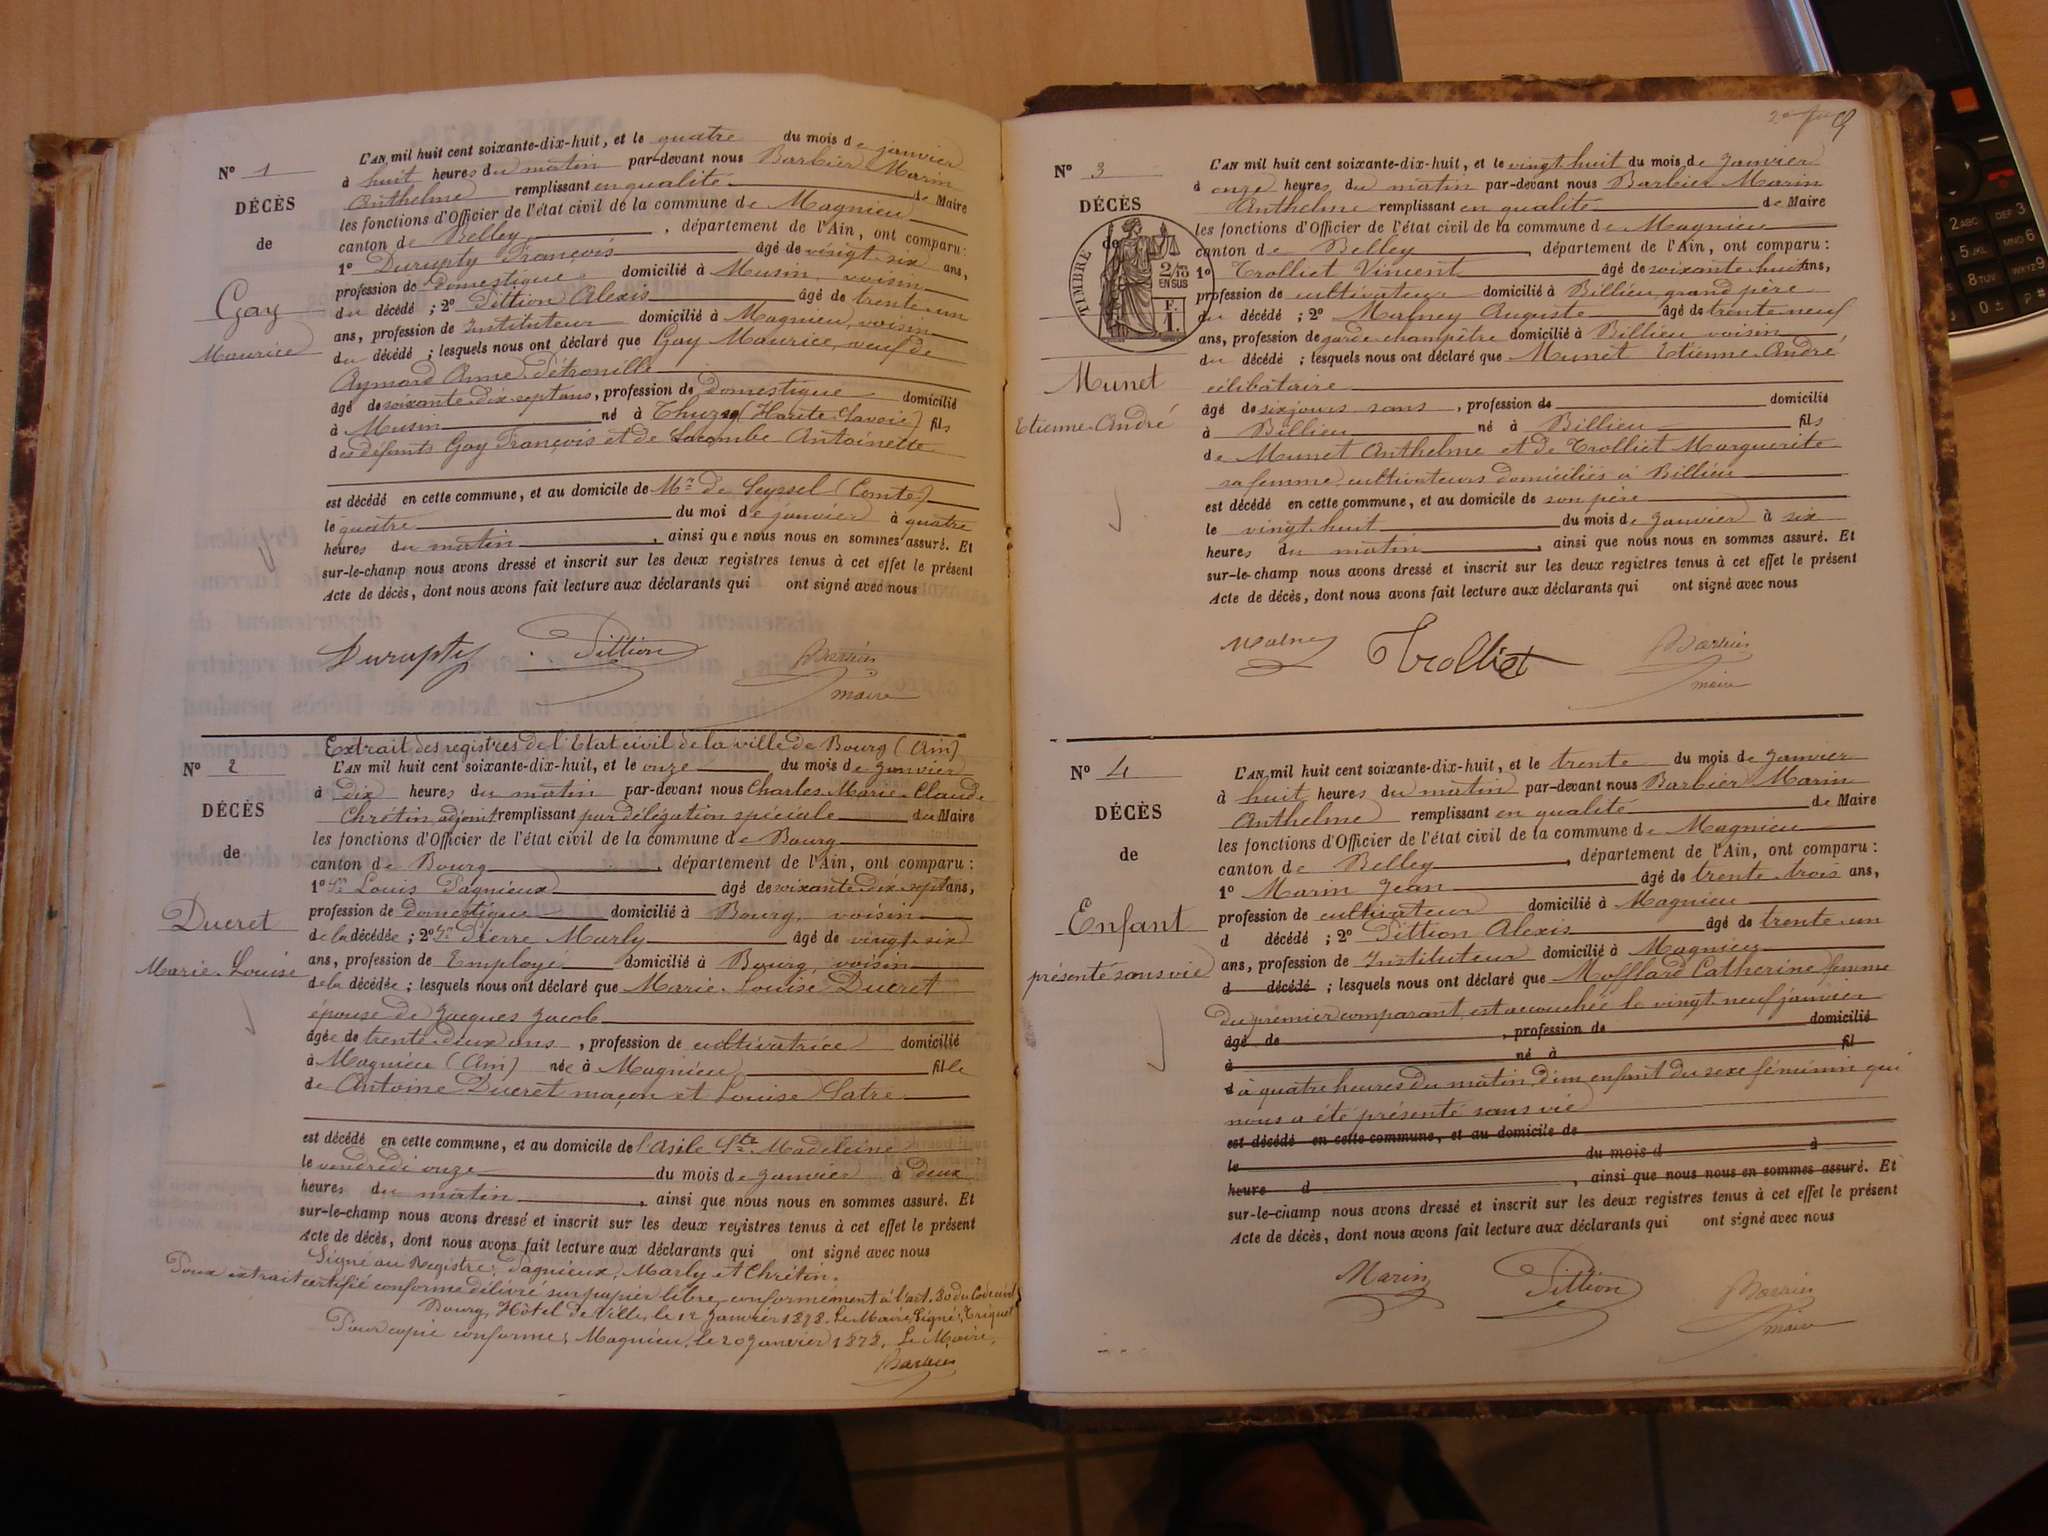 N° 1
DÉCÈS
de
Gay
Maurice
L'AN mil huit cent soixante-dix-huit, et le quatre du mois de janvier
à huit heures du matin par-devant nous Barbier Marin
Anthelme remplissant en qualité de Maire
les fonctions d'Officier de l'état civil de la commune de Magnieu
canton de Belley, département de l'Ain, ont comparu:
1° Durupty François âgé de vingt-six ans,
profession de domestique domicilié à Musin, voisin
du décédé ; 2° Pittion Alexis âgé de trente-un
ans, profession de Instituteur domicilié à Magnieu, voisin
du décédé ; lesquels nous ont déclaré que Gay Maurice, veuf de
Aymard Anne Pétronille
âgé de soixante-dix-sept ans, profession de domestique domicilié
à Musin né à (Haute-Savoie) fils
des défunts Gay François et de Lacombe Antoinette
est décédé en cette commune, et au domicile de Mr de Seyssel (Comte)
le quatre du moi de janvier à quatre
heures du matin, ainsi que nous nous en sommes assuré. Et
sur-le-champ nous avons dressé et inscrit sur les deux registres tenus à cet effet le présent
Acte de décès, dont nous avons fait lecture aux déclarants qui ont signé avec nous
Durupty Pittion Barbier
maire
Extrait des registres de l'Etat civil de la ville de Bourg (Ain)
N° 2
DÉCÈS
de
Ducret
Marie-Louise
L'AN mil huit cent soixante-dix-huit, et le onze du mois de janvier
à dix heures du matin par-devant nous Charles-Marie-Claude
Chrétin, adjoint remplissant par délégation spéciale du Maire
les fonctions d'Officier de l'état civil de la commune de Bourg
canton de Bourg, département de l'Ain, ont comparu :
1° Sr Louis Pagnieux âgé de soixante-dix-sept ans,
profession de domestique domicilié à Bourg, voisin
de la décédée ; 2° Sr Pierre Marly âgé de vingt-six
ans, profession de Employé domicilié à Bourg, voisin
de la décédée ; lesquels nous ont déclaré que Marie-Louise Ducret
épouse de Jacques Jacob
âgée de trente-deux ans, profession de cultivatrice domicilié
à Magnieu (Ain) née à Magnieu fille
de Antoine Ducret maçon et Louise Satre
est décédé en cette commune, et au domicile de l'Asile Ste Madeleine
le vendredi onze du mois de janvier à deux
heures du matin, ainsi que nous nous en sommes assuré. Et
sur-le-champ nous avons dressé et inscrit sur les deux registres tenus à cet effet le présent
Acte de décès, dont nous avons fait lecture aux déclarants qui ont signé avec nous
Signé au Registre : Pagnieux, Marly et Chrétin.
Pour extrait certifié conforme délivré sur papier libre, conformément à l'art. 80 du Code civil
Bourg, Hôtel de Ville, le 12 Janvier 1878. Le Maire, Signé :
Pour copie conforme, Magnieu, le 20 janvier 1878, Le Maire,
Barbier
N° 3
DÉCÈS
de
TIMBRE
2/10
EN SUS
F.
1.
Munet
Etienne-André
L'AN mil huit cent soixante-dix-huit, et le vingt-huit du mois de janvier
à onze heures du matin par-devant nous Barbier Marin
Anthelme remplissant en qualité de Maire
les fonctions d'Officier de l'état civil de la commune de Magnieu
canton de Belley, département de l'Ain, ont comparu :
1° Trolliet Vincent âgé de soixante-huit ans,
profession de cultivateur domicilié à Billieu, grand père
du décédé ; 2° Malney Auguste âgé de trente-neuf
ans, profession de garde-champêtre domicilié à Billieu voisin
du décédé ; lesquels nous ont déclaré que Munet Etienne-André
célibataire
âgé de six jours sans, profession de domicilié
à Billieu né à Billieu fils
de Munet Anthelme et de Trolliet Marguerite
sa femme cultivateurs domiciliés à Billieu
est décédé en cette commune, et au domicile de son père
le vingt-huit du mois de janvier à six
heures du matin, ainsi que nous nous en sommes assuré. Et
sur-le-champ nous avons dressé et inscrit sur les deux registres tenus à cet effet le présent
Acte de décès, dont nous avons fait lecture aux déclarants qui ont signé avec nous
Malney Trolliet Barbier
maire
N° 4
DÉCÈS
de
Enfant
présenté sans vie
L'AN mil huit cent soixante-dix-huit, et le trente du mois de janvier
à huit heures du matin par-devant nous Barbier Marin
Anthelme remplissant en qualité de Maire
les fonctions d'Officier de l'état civil de la commune de Magnieu
canton de Belley, département de l'Ain, ont comparu :
1° Marin Jean âgé de trente-trois ans,
profession de cultivateur domicilié à Magnieu
d décédé ; 2° Pittion Alexis âgé de trente-un
ans, profession de Instituteur domicilié à Magnieu
d décédé ; lesquels nous ont déclaré que Mofflard Catherine femme
du premier comparant, est accouchée le vingt-neuf janvier
âgé de, profession de domicilié
à né à fil
d à quatre heures du matin, d'un enfant du sexe féminin qui
nous a été présenté sans vie
est décédé en cette commune, et au domicile de
le du mois d à
heure d, ainsi que nous nous en sommes assuré. Et
sur-le-champ nous avons dressé et inscrit sur les deux registres tenus à cet effet le présent
Acte de décès, dont nous avons fait lecture aux déclarants qui ont signé avec nous
Marin Pittion Barbier
maire